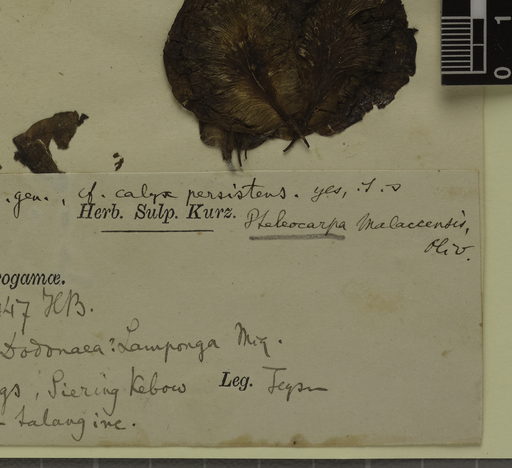 . gen. , cf. calyx persistens. yes,
Herb. Sulp. Kurz.
Pteleocarpa Malaccensis,
Oliv.
ogamæ.
47 HB.
Dodonaea? Lamponga Miq.
gs, Siering Kebow Leg. Teysm
- talang ine.
0 1